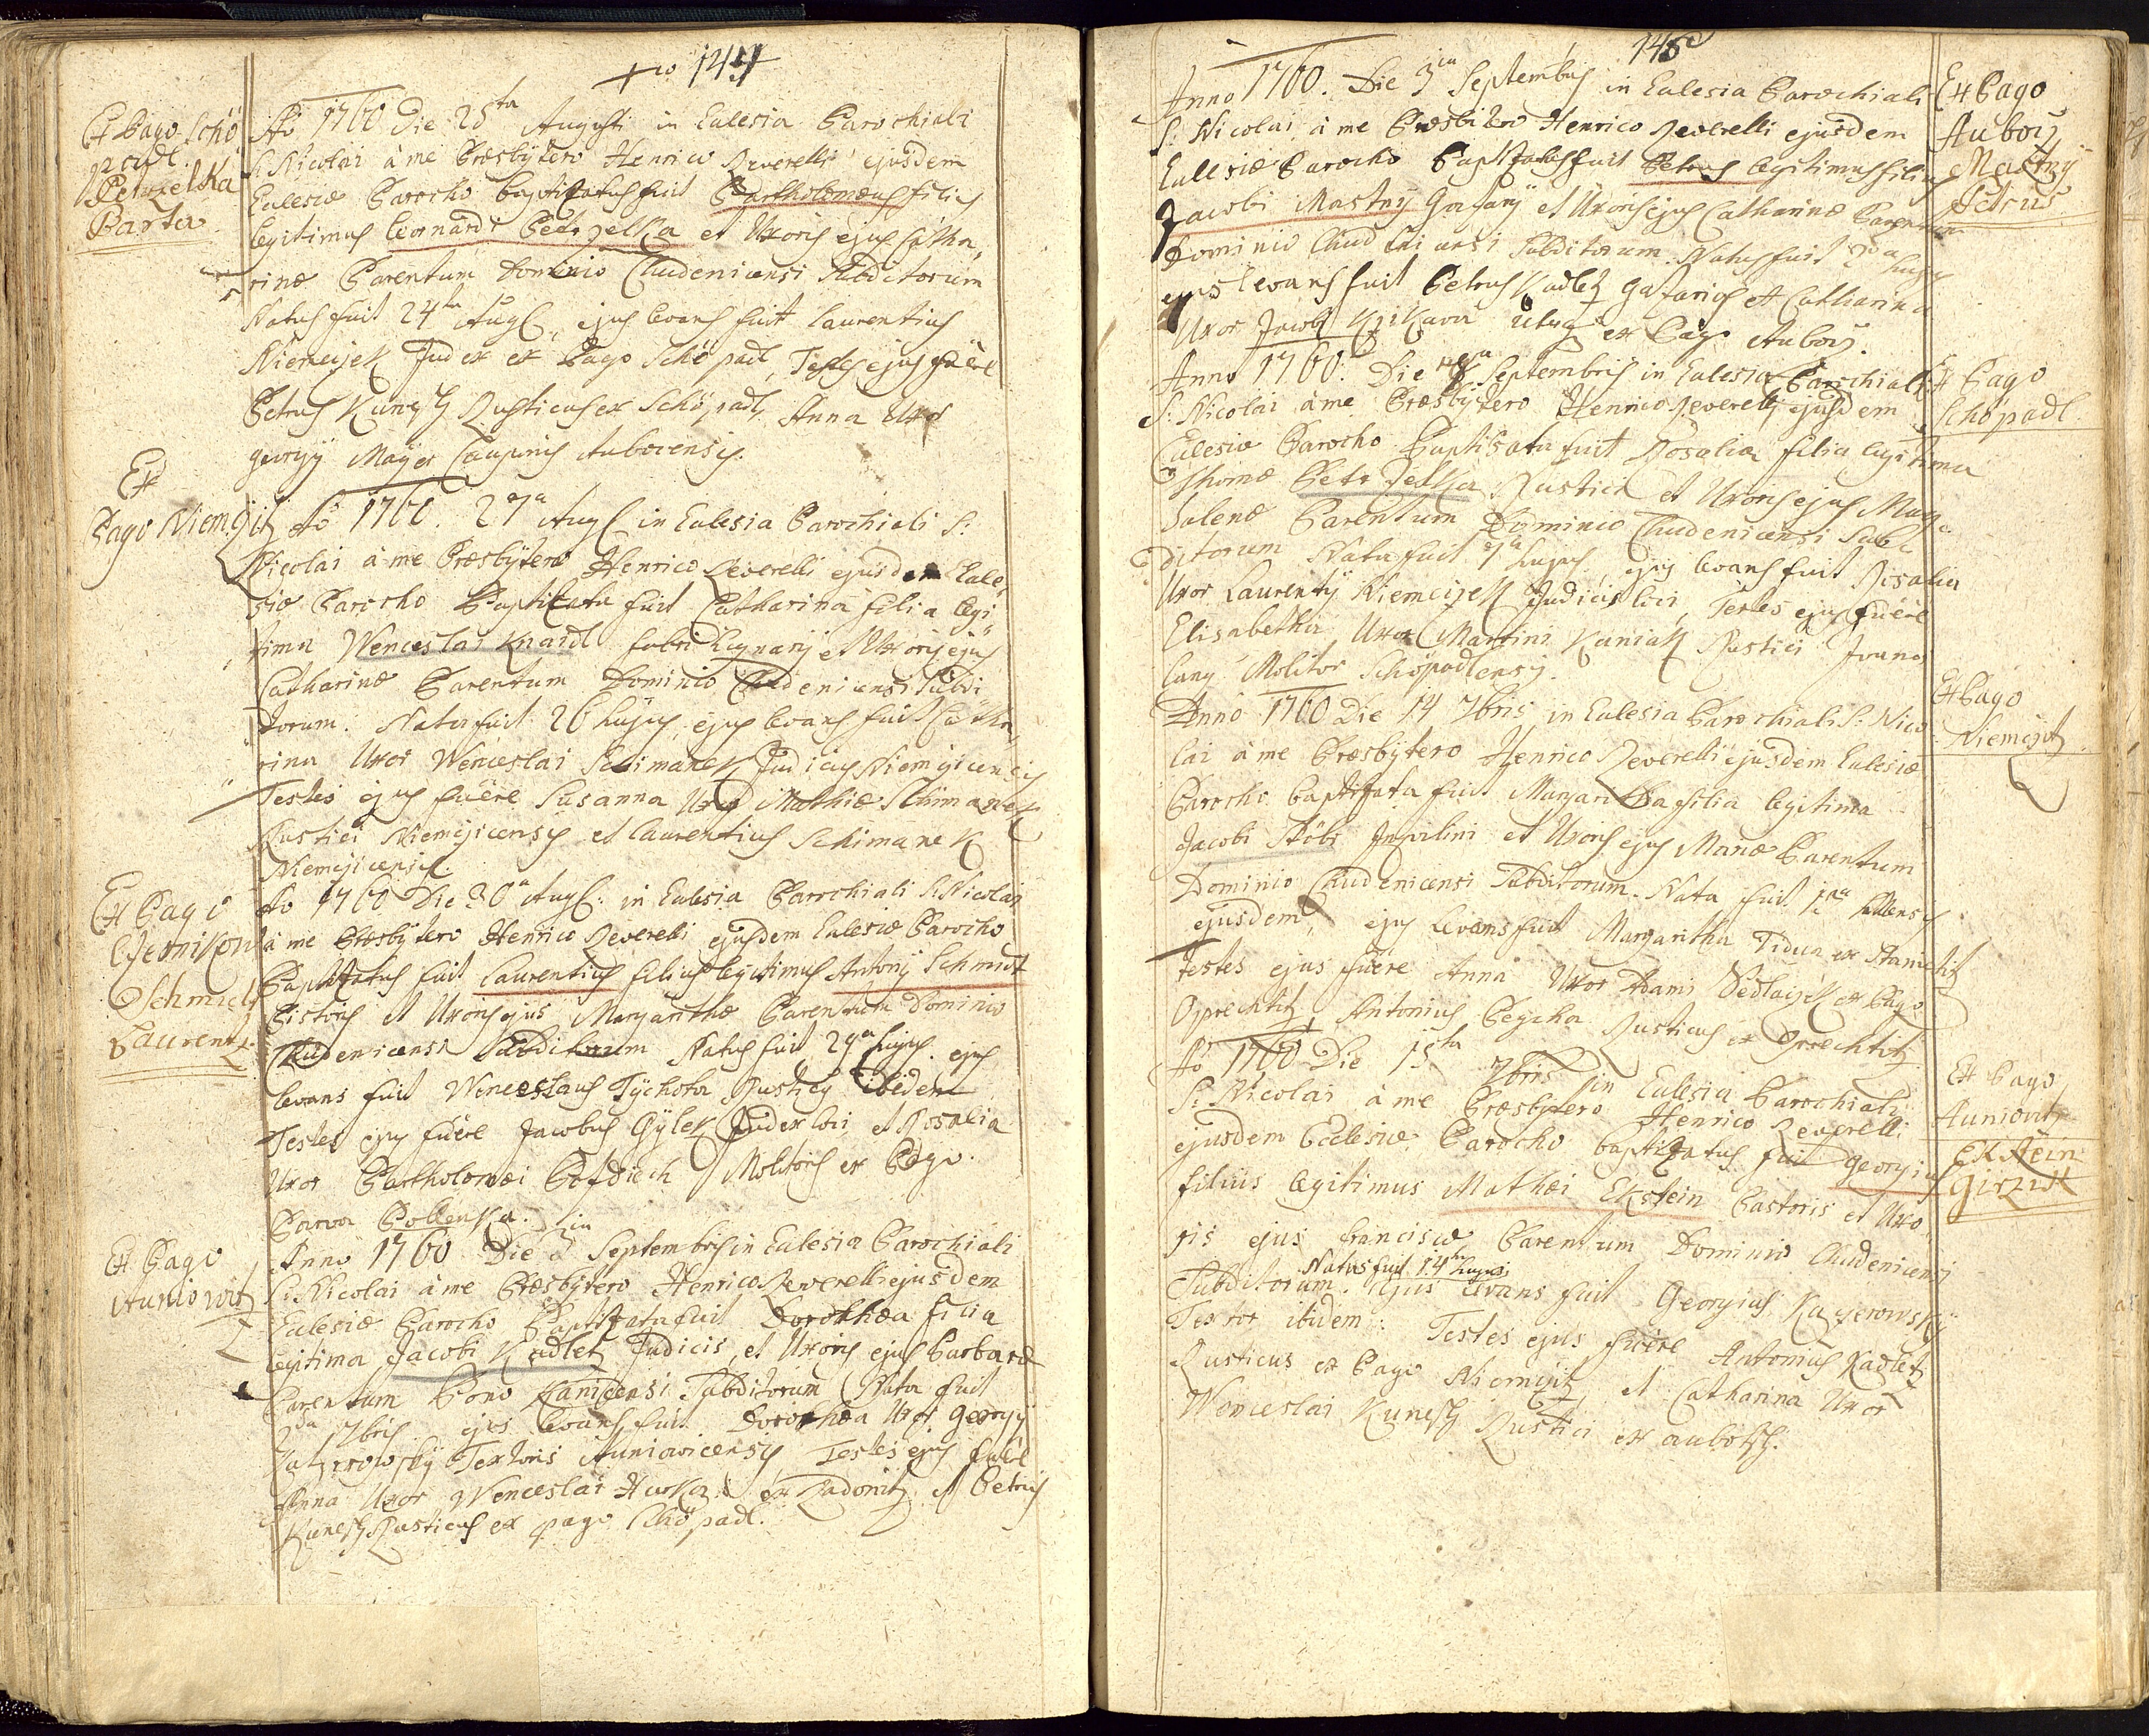 144
Ex Pago Schö
padl.
Petrzelka
Barta
Ao 1760 Die 25ta Augusti in Eclesia Parochiali
S: Nicolai à me Præsbytero Henrico Reverelli ejusdem
Eclesiæ Parocho baptizatus fuit Bartholomæus filius
legitimus Leonardi Petrzelka et Uxoris ejus Catha
rinæ Parentum Dominio Chudenicensi Subditorum
Natus fuit 24ta Aug: ejus levans fuit Laurentius
Niemcijek Judex ex Pago Schöpadl, Testes ejus fuêre
Petrus Kunesch Rusticus ex Schöpadl, Anna Uxor
Georgij Mayer Caupinis Auborensis.
Ex
Pago Niemcziz
Ao 1760. 27a Aug: in Eclesia Parochiali S:
Nicolai à me Præsbytero Henrico Reverelli ejusdem Ecle
siæ Parocho Baptizata fuit Catharina filia legi
tima Wenceslai Knaidl fabri lignarij et Uxoris ejus
Catharinæ Parentum Dominio Chudenicensi Subdi
torum. Nata fuit 26 hujus, ejus levans fuit Catha
rina Uxor Wenceslai Schimanek Judicis Niemcicensis
Testes ejus fuêre Susanna Uxor Mathiæ Schimanek
Rustici Niemcicensis et Laurentius Schimanek
Niemcicensis.
Ex Pago
Czernikon
Schmidt
Laurentz
Ao 1760 Die 30a Aug: in Eclesia Parochiali S: Nicolai
à me Præsbytero Henrico Reverelli ejusdem Eclesiæ Parocho
Baptizatus fuit Laurentius filius legitimus Antonij Schmidt
Pistoris et Uxoris ejus Margarithæ Parentum Dominio
Chudenicensi Subditorum Natus fuit 29a hujus. ejus
levans fuit Wenceslaus Tychota Rusticus ibidem
Testes ejus fuêre Jacobus Gylek Judex loci et Rosalia
Uxor Bartholomæi Molitoris ex Pago
Parva Pollenka.
Ex Pago
Auniowitz
Anno 1760 Die 3tia Septembris in Eclesia Parochiali
S: Nicolai à me Præsbytero Henrico Reverelli ejusdem
Eclesiæ Parocho Baptizata fuit Dorothæa filia
legitima Jacobi Kadletz Judicis, et Uxoris ejus Barbaræ
Parentum Bono Kanicensi Subditorum Nata fuit
2da 7bris ejus levans fuit Dorothæa Uxor Georgij
Kayerowsky Textoris Auniowicensis Testes ejus fuêre
Anna Uxor Wenceslai Hurka ex Zadonitz et Petrus
Kunesch Rusticus ex pago Schöpadl.
145
Anno 1760. Die 3tia Septembris in Eclesia Parochiali
S: Nicolai à me Præsbitero Henrico Reverelli ejusdem
Eclesiæ Parocho Baptizatus fuit Petrus legitimus filius
Jacobi Mastny Gazarij et Uxoris ejus Catharinæ Parentum
Dominio Chudenicensi Subditorum. Natus fuit 2da hujus
ejus levans fuit Petrus Kadletz Gazarius et Catharina
Uxor Jacobi utrique ex Pago Auborz.
Ex Pago
Auborz
Mastny
Petrus
Anno 1760. Die 8va Septembris in Eclesia Parochiali
S: Nicolai à me Præsbytero Henrico Reverelli ejusdem
Eclesiæ Parocho Baptisata fuit Rosalia filia legitima
Thomæ Petrzelka Rustici et Uxoris ejus Mag
dalenæ Parentum Dominio Chudenicensi Sub
ditorum Nata fuit 7a hujus. ejus levans fuit Rosalia
Uxor Laurentij Niemcizek Judicis loci, Testes ejus fuêre
Elisabetha Uxor Martini Kuniak Rustici Joannes
Lang Molitor Schöpadlensis.
Ex Pago
Schöpadl
Anno 1760 Die 14 7bris in Eclesia Parochiali S: Nico
lai à me Præsbytero Henrico Reverelli ejusdem Eclesiæ
Parocho baptizata fuit Margaritha filia legitima
Jacobi Inquilini et Uxoris ejus Mariæ Parentum
Dominio Chudenicensi Subditorum. Nata fuit
ejusdem, ejus levans fuit Margaritha Vidua ex Stanietitz
Testes ejus fuêre Anna Uxor Adami Sedlaczek ex Pago
Oprechtitz, Antonius Peycha Rusticus ex Oprechtitz
Ex Pago
Niemczitz
Ao 1760 Die 15ta 7bris in Eclesia Parochiali
S: Nicolai à me Præsbytero Henrico Reverelli
ejusdem Ecclesiæ Parocho baptizatus fuit Georgius
filius legitimus Mathæi Ekstein Pastoris et Uxo
ris ejus Franciscæ Parentum Dominio Chudenicensi
Natus fuit 14ta hujus
Subditorum. Ejus levans fuit Georgius Kayerowsky
Textor ibidem. Testes ejus fuêre Antonius Kadletz
Rusticus ex Pago Niemcziz et Catharina Uxor
Wenceslai Kunesch Rustici ex Auborz.
Ex Pago
Auniowitz
Ekstein
Girzik